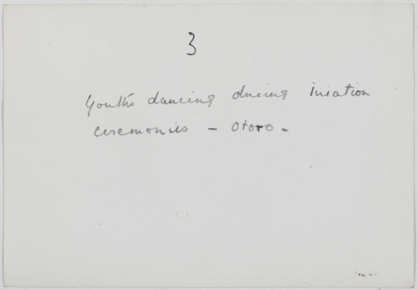 3
Youths dancing during Iniation
ceremonies - Otoro -